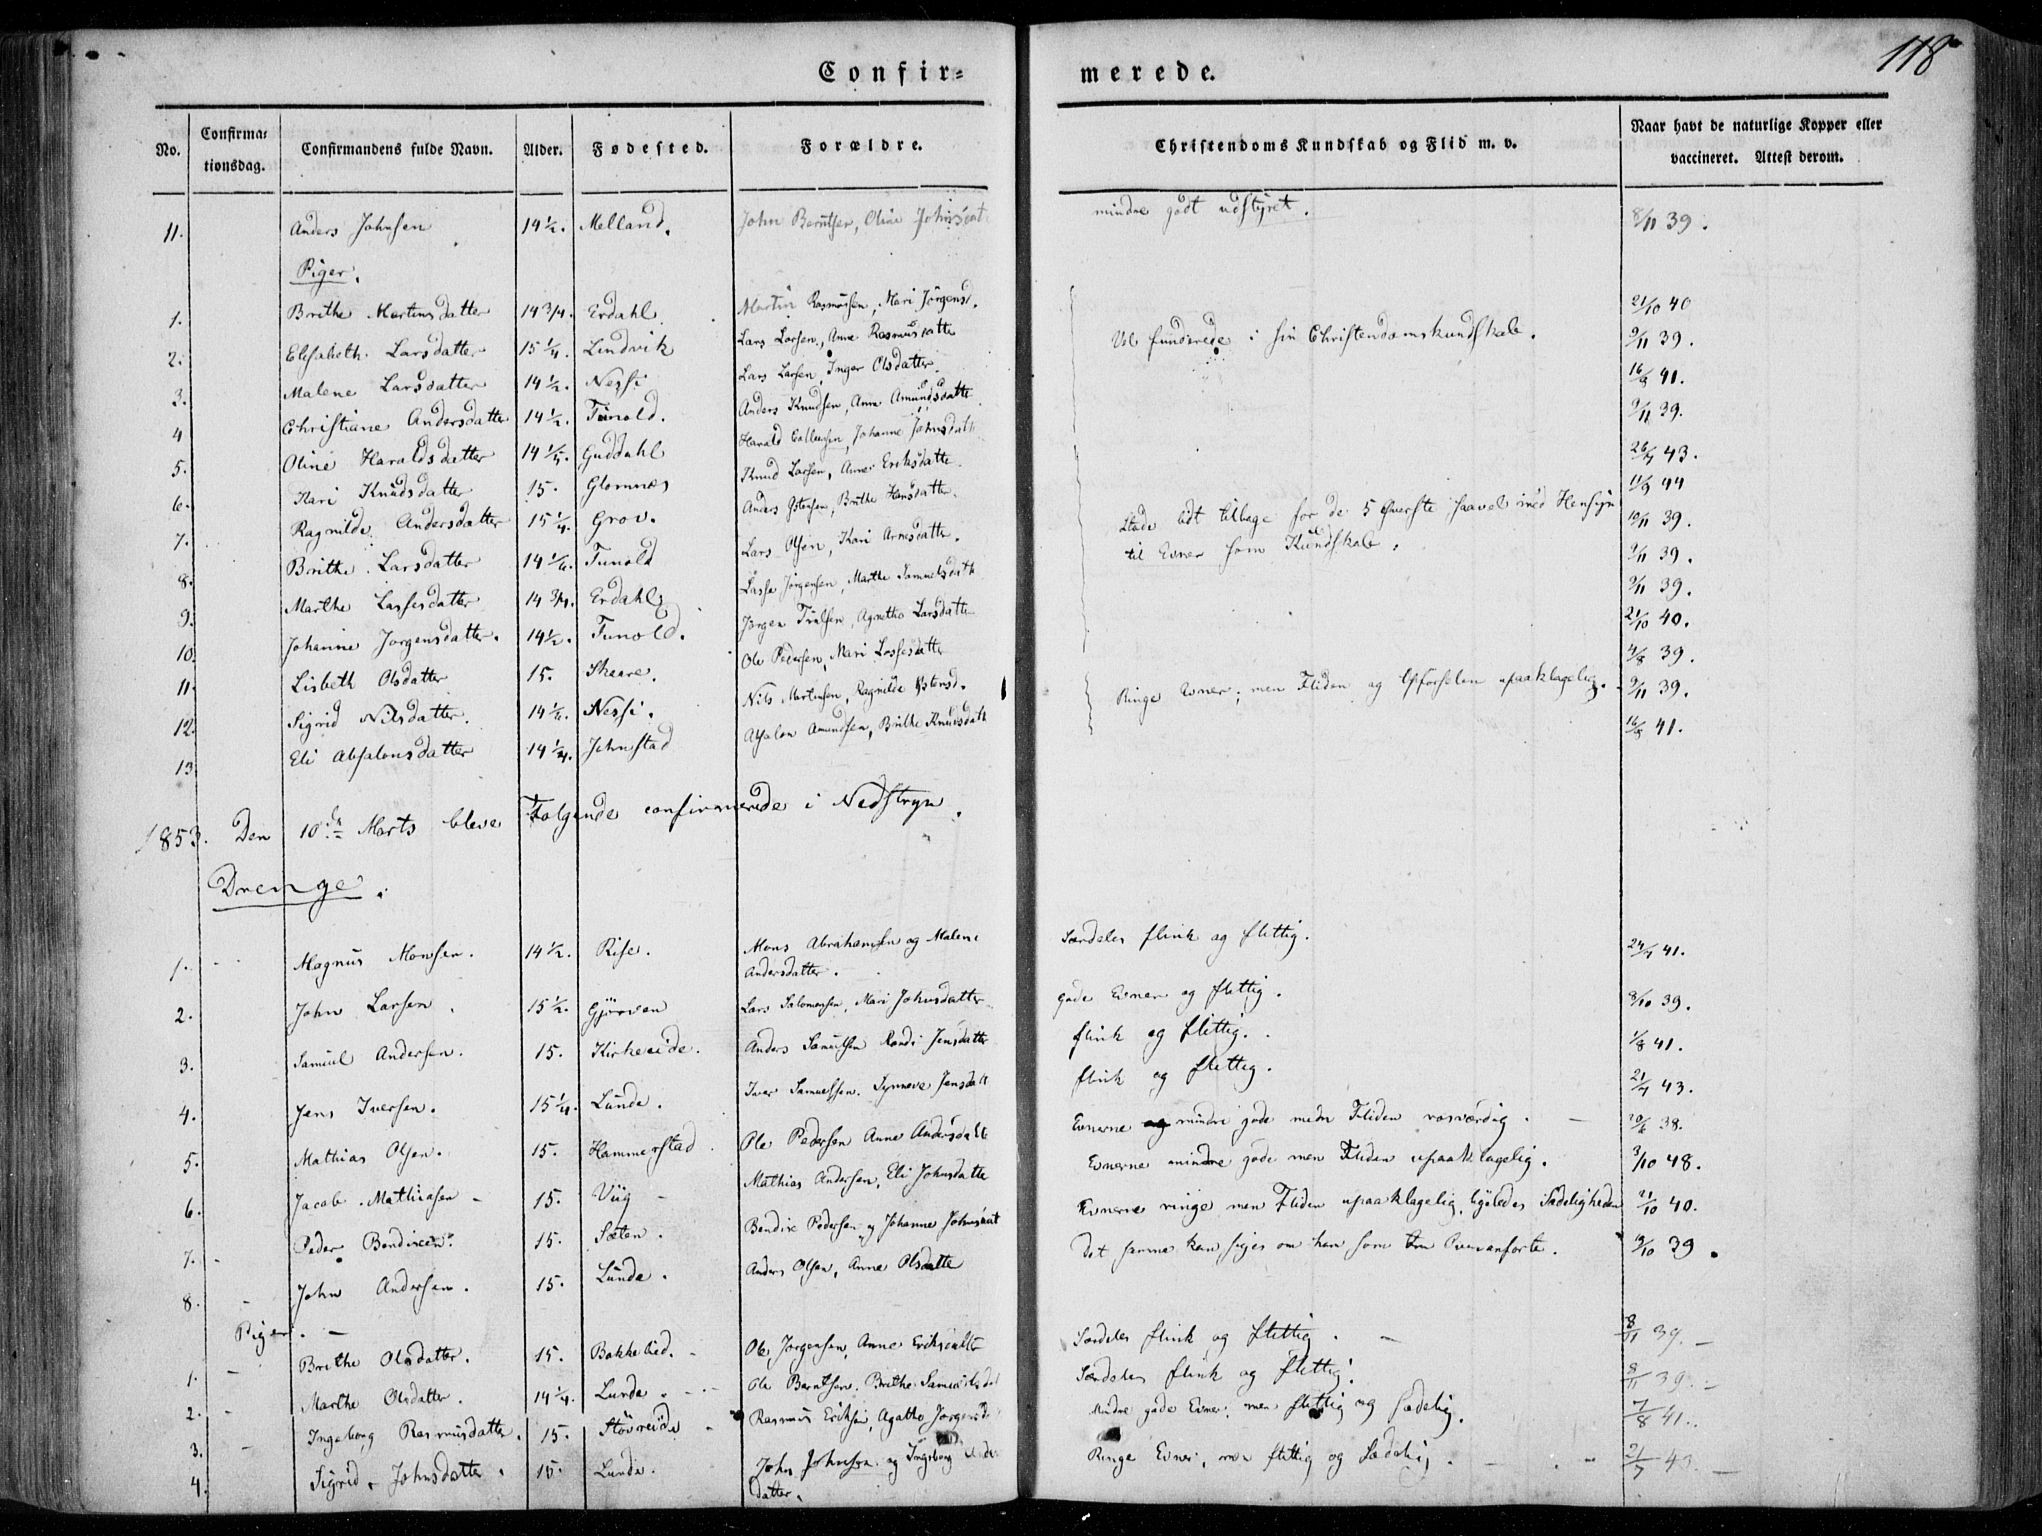 118
Confir- merede.
No. Confirma-tionsdag. Confirmandens fulde Navn. Alder. Fødested. Forældre. Christendoms Kundskab og Flid m. v. Naar havt de naturlige Kopper eller vaccineret. Attest derom.
11. Anders Johnsen 14½. Melland. John Berntsen, Oline Johnsdat mindre godt udstyret. 8/11 39.
Piger.
1. Brithe Martinsdatter 14 3/4. Erdahl Martin Rasmussen, Mari Jörgensd. 21/10 40
2. Elisabeth Larsdatter 15 1/4. Lindvik Lars Larsen, Anne Rasmusdatte Vel funderede i sin Christendomskundskab. 9/11 39.
3. Malene Larsdatter 14½. Nesse Lars Larsen, Inger Olsdatter. 16/8 41.
4 Christiane Andersdatter 14½. Tunold. Anders Knudsen, Anne Amundsdatte 9/11 39.
5. Oline Haraldsdatter 14 1/4. Guddahl Harald, Johanne Johnsdatt 26/7 43.
6. Kari Knudsdatter 15. Glomnes Knud Larsen, Anne Eriksdatte. 11/9 44
7. Ragnilde Andersdatter 15 1/4. Grov. Anders Istensen, Brithe Hansdatter. Stode lidt tilbage for de 5 Øverste saavel med Hensyn 10/11 39.
8. Brithe Larsdatter 14 1/2. Tunold Lars Olsen, Kari Arnesdatte. til Evner som Kundskab. 9/11 39.
9. Marthe Lassesdatter 14 3/4. Erdahl Lasse Jörgensen, Marthe Samuelsdatt 9/11 39.
10. Johanne Jorgensdatter. 14½. Tunold. Jörgen, Agnethe Larsdatte 21/10 40.
11. Lisbeth Olsdatter 15. Skaare. Ole Pedersen, Mari Lassesdatter 4/8 39.
12. Sigrid Nilsdatter. 14½. Nesse. Nils Martinsen, Ragnilde Istensd. Ringe Evner; men Fliden og Opførselen upaaklagelig. 9/11 39.
13 Eli Absalonsdatter 14 1/4. Johnstad Absalon Amundsen, Brithe Knudsdatt 16/8 41.
1853. Den 10de Marts bleve Følgende confirmerede i Nedstryn.
Drenge.
1. Magnus Monsen. 14½. Rise. Mons Abrahamsen og Malene Andersdatter. Særdeles flink og flittig. 24/7 41.
2. John Larsen. 15½. Gjørven Lars Salomonsen, Mari Johnsdatter gode Evner og flittig. 8/10 39.
3. Samuel Andersen. 15. Kirkeeide. Anders Samuelsen Randi Jensdatter flink og flittig. 1/8 41.
4. Jens Iversen. 15 1/4. Lunde. Iver Samuelsen. Synneve Jensdatt flink og flittig. 21/7 43.
5. Mathias Olsen. 15. Hammerstad. Ole Pedersen Anne Andersdatte Evnerne mindre gode men Fliden rosværdig. 20/6 38.
6. Jacob Mathiasen 15. Viig Mathias Andersen, Eli Johnsdatte Evnerne mindre gode men Fliden upaaklagelig. 3/10 48.
7. Peder Bendixen. 15. Sæten. Bendix Pedersen og Johanne Johnsdat Evnerne ringe men Fliden upaaklagelig, ligeledes Sædeligheden 21/10 40.
8. John Andersen. 15. Lunde. Anders Olsen, Anne Olsdatte Det samme kan siges om ham som om Ovenanførte. 9/10 39.
Piger.
1. Brithe Olsdatter. 15. Bakkelied. Ole Jorgensen, Anne Eriksdatter Særdeles flink og flittig. 8/11 39.
2. Marthe Olsdatter. 14 1/4. Lunde. Ole Berntsen. Brithe Samuelsdat Særdeles flink og flittig. 8/11 39.
3. Ingeborg Rasmusdatter. 15. Støvreide Rasmus Eriksen, Agathe Jorgensd Mindre gode Evner; men flittig og sædelig. 7/8 41.
4. Sigrid Johnsdatter. 15. Lunde. John Johnsen og Ingeborg datter. Ringe Evner, men flittig og Sædelig. 21/7 43.